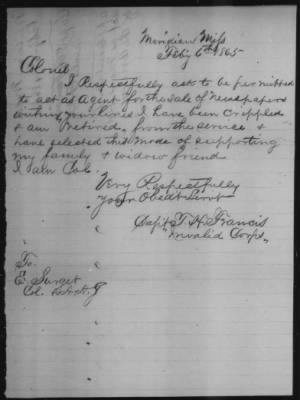 Meridian Miss
Feby 6th 1865
Colonel
I Respectfully ask to be permitted
to act as Agent for the sale of Newspapers
within our lines I have been Crippled
& am Retired from the service &
have selected this mode of supporting
my family & widow friend
I am Col.
Very Respectfully
Your Obedt Servt
Capt T. H. Francis
"Invalid Corps"
To
E Surget
Col. & A A G